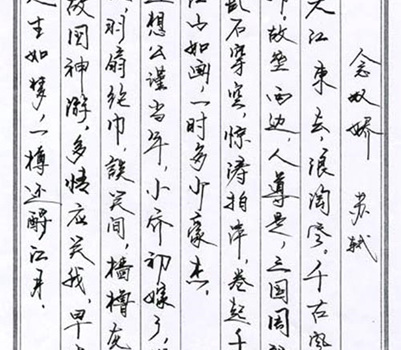 念奴娇 苏轼
大江東去，浪淘尽，千古風
故垒西边，人道是，三国周
乱石穿空，惊涛拍岸，卷起千
江山如画，一时多少豪杰。
遥想公瑾当年，小乔初嫁了，
羽扇纶巾，談笑间，樯橹灰
故国神游，多情应笑我，早
人生如梦，一樽还酹江月。